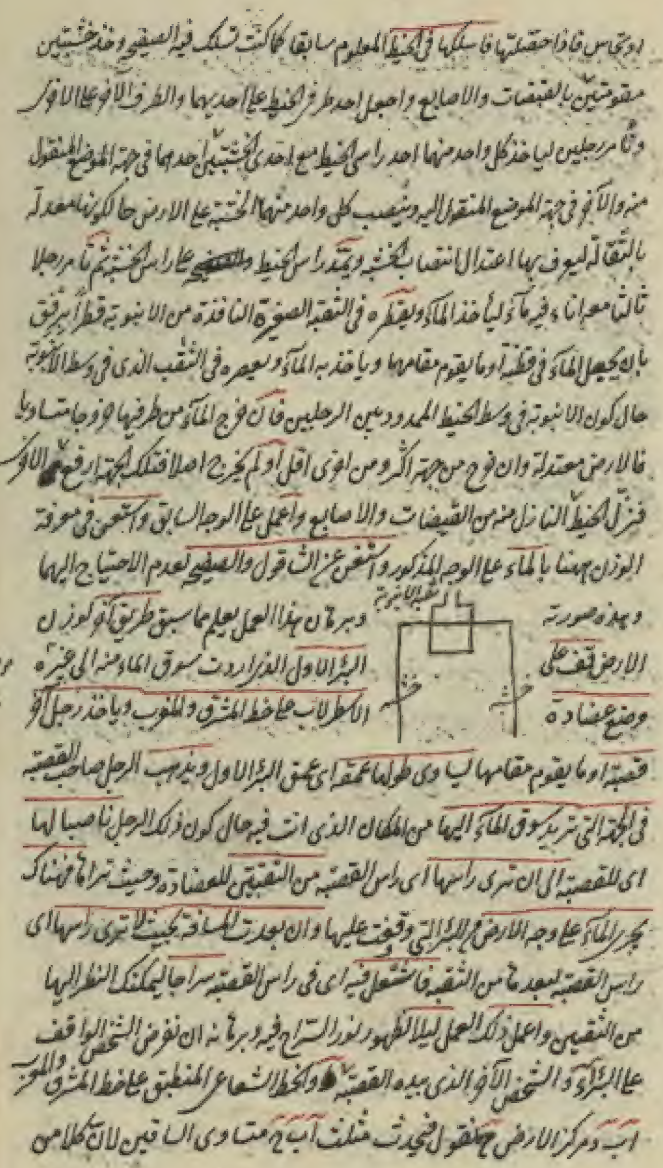 او نحاس فاذا حصلتها فاسلكها فى الخيط المعلوم سابقا كما كنت تسلك فيه الصفيحه وخذ خشبتين
مقومتين بالقبضات والاصابع واجعل احد طرفى الخيط على احديهما والطرف الآخر على الاخرى
وتأمر رجلين لياخذ كل واحد منهما احد راسى الخيط مع احدى الخشبتين احدهما فى جهة الموضع المنقول
منه والآخر فى جهة الموضع المنقول اليه وينصب كل واحد منهما الخشبة على الارض حال كونها معدلة
بالثقالة ليعرف بها اعتدال انتصاب الخشبه ويمد راس الخيط على راس الخشبة ثم تأمر رجلا
ثالثا معه اناء فيه ماء لياخذ الماء ويقطره فى الثقبة الصغيرة النافذة من الانبوبة قطرا برفق
بان يجعل الماء فى قطنة او ما يقوم مقامها وياخذ به الماء ويعصره فى الثقب الذى فى وسط الانبوبة
حال كون الانبوبة فى وسط الخيط الممدود بين الرجلين فان خرج الماء من طرفيها خروجا متساويا
فالارض معتدلة وان خرج من جهة اكثر ومن اخرى اقل او لم يخرج اصلا فتلك الجهة ارفع من الاخرى
فنزل الخيط النازل منه من القبضات والاصابع واعمل على الوجه السابق واستعن فى معرفة
الوزن ههنا بالماء على الوجه المذكور واستغن عن الشاقول والصفيحه لعدم الاحتياج اليهما
وهذه صورته ثقبة الانبوبة وبرهان هذا العمل يعلم مما سبق طريق آخر لوزن
الارض قف على خشبة خشبة البئر الاول الذى اردت سوق الماء منه الى غيره
وضع عضادة الاسطرلاب على خط المشرق والمغرب وياخذ رجل آخر
قصبة او ما يقوم مقامها يساوى طولها عمقه اى عمق البئر الاول ويذهب الرجل صاحب القصبة
فى الجهة التى تريد سوق الماء اليها من المكان الذى انت فيه حال كون ذلك الرجل ناصبا لها
اى للقصبة الى ان ترى راسها اى راس القصبة من الثقبتين للعضادة وحيث تراها فهناك
يجرى الماء على وجه الارض من البئر التى وقفت عليها وان بعدت المسافة بحيث لا ترى راسها اى
راس القصبة لبعدها من الثقبه فاشتعل فيه اى فى راس القصبة سراجا ليمكنك النظر اليها
من الثقبتين واعمل ذلك العمل ليلا لظهور نور السراج فيه وبرهانه ان نفرض الشخص الواقف
على البئر آء والشخص الآخر الذى بيده القصبة والخط الشعاعى المنطبق على خط المشرق والمغرب
اب ومركز الارض ح فنقول فيحدث مثلث آب ح متساوى الساقين لان كلا من